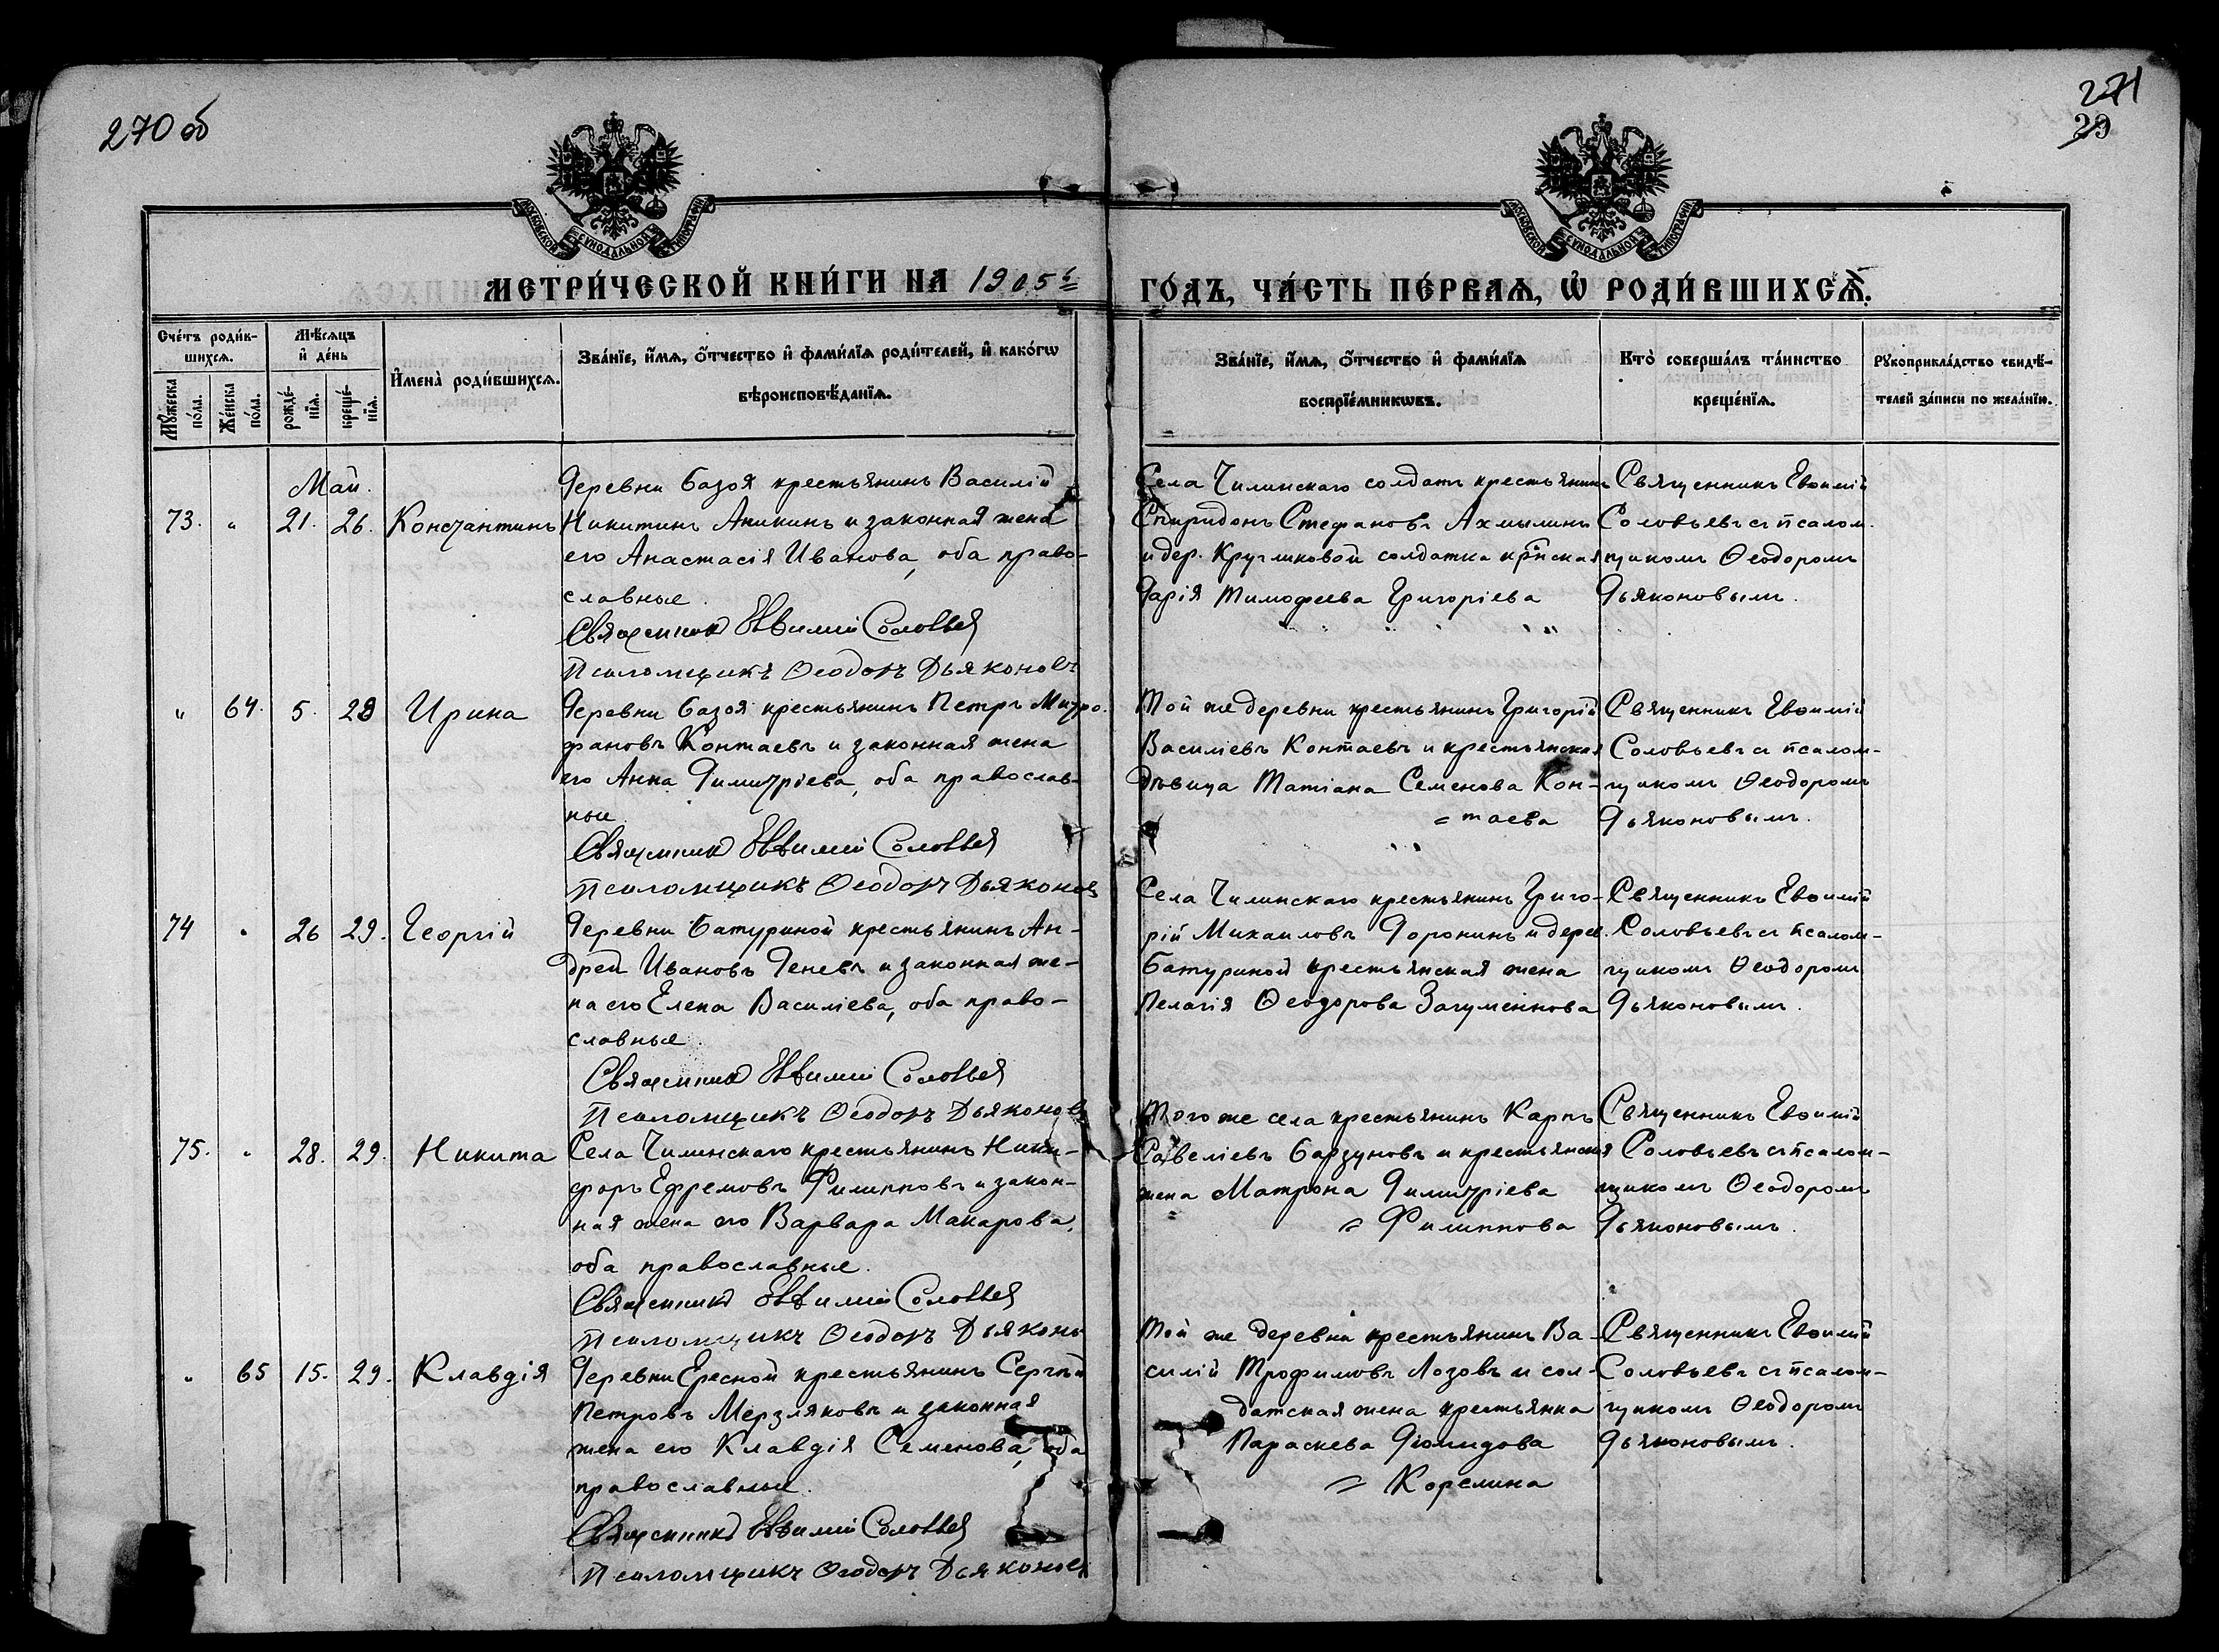 270 об
271
29
МОСКОВСКОЙ СѴНОДАЛЬНОЙ ТИПОГРАФІИ
МОСКОВСКОЙ СѴНОДАЛЬНОЙ ТИПОГРАФІИ
МЕТРИ́ЧЕСКОЙ КНИ́ГИ НА 1905й
ГО́ДЪ, ЧА́СТЬ ПЕ́РВАѦ, Ѡ҆ РОДИ́ВШИХСѦ.
Сче́тъ роди́в-
шихсѧ.
Мѣ́сѧцъ
и҆ де́нь
Мꙋ́жеска
по́ла.
Же́нска
по́ла.
рожде́-
нїѧ.
креще́-
нїѧ.
И҆мена̀ роди́вшихсѧ.
Зва́нїе, и҆́мѧ, ѻ҆́тчество и҆ фами́лїѧ роди́телей, и҆ како́гѡ
вѣроисповѣ́данїѧ.
Зва́нїе, и҆́мѧ, ѻ҆́тчество и҆ фами́лїѧ
воспрїе́мникѡвъ.
Кто̀ соверша́лъ та́инство
креще́нїѧ.
Рꙋкоприкла́дство свидѣ́-
телей за́писи по жела́нїю.
Май.
73. " 21. 26. Константинъ
Деревни Базоя крестьянинъ Василій
Никитинъ Аникинъ и законная жена
его Анастасія Иванова, оба право-
славные.
Священникъ Евѳимій Соловьевъ
Псаломщикъ Ѳеодоръ Дьяконовъ
Села Чилинскаго солдатъ крестьянинъ
Спиридонъ Стефановъ Ахмылинъ
и дер. Кругликовой солдатка кр̃нская
Дарія Тимофеева Григоріева
Священникъ Евѳимій
Соловьевъ съ псалом.
щикомъ Ѳеодоромъ
Дьяконовымъ.
" 64. 5. 28 Ирина
Деревни Базоя крестьянинъ Петръ Митро.
фановъ Контаевъ и законная жена
его Анна Димитріева, оба православ-
ные.
Священникъ Евѳимій Соловьевъ
Псаломщикъ Ѳеодоръ Дьяконовъ
Той же деревни крестьянинъ Григорій
Василіевъ Контаевъ и крестьянская
дѣвица Татіана Семенова Кон-
= таева
Священникъ Евѳимій
Соловьевъ съ псалом-
щикомъ Ѳеодоромъ
Дьяконовымъ.
74 " 26 29. Георгій
Деревни Батуриной крестьянинъ Ан-
дрей Ивановъ Деневъ и законная же-
на его Елена Василіева, оба право-
славные.
Священникъ Евѳимій Соловьевъ
Псаломщикъ Ѳеодоръ Дьяконовъ
Села Чилинскаго крестьянинъ Григо-
рій Михаиловъ Доронинъ и дерев.
Батуриной крестьянская жена
Пелагія Ѳеодорова Загуменнова
Священникъ Евѳимій
Соловьевъ съ псалом-
щикомъ Ѳеодоромъ
Дьяконовымъ.
75. " 28. 29. Никита
Села Чилинскаго крестьянинъ Ники-
форъ Ефремовъ Филипповъ и закон-
ная жена его Варвара Макарова,
оба православные.
Священникъ Евѳимій Соловьевъ
Псаломщикъ Ѳеодоръ Дьяконъ
Того же села крестьянинъ Карпъ
Савеліевъ Барзуновъ и крестьянская
жена Матрона Димитріева
= Филиппова
Священникъ Евѳимій
Соловьевъ съ псалом-
щикомъ Ѳеодоромъ
Дьяконовымъ.
" 65 15. 29. Клавдія
Деревни Ересной крестьянинъ Сергѣй
Петровъ Мерзляковъ и законная
жена его Клавдія Семенова, оба
православные.
Священникъ Евѳимій Соловьевъ
Псаломщикъ Ѳеодоръ Дьяконовъ
Той же деревни крестьянинъ Ва-
силій Трофимовъ Лозовъ и сол-
датская жена крестьянка
Параскева Діомидова
= Корелина
Священникъ Евѳимій
Соловьевъ съ псалом-
щикомъ Ѳеодоромъ
Дьяконовымъ.